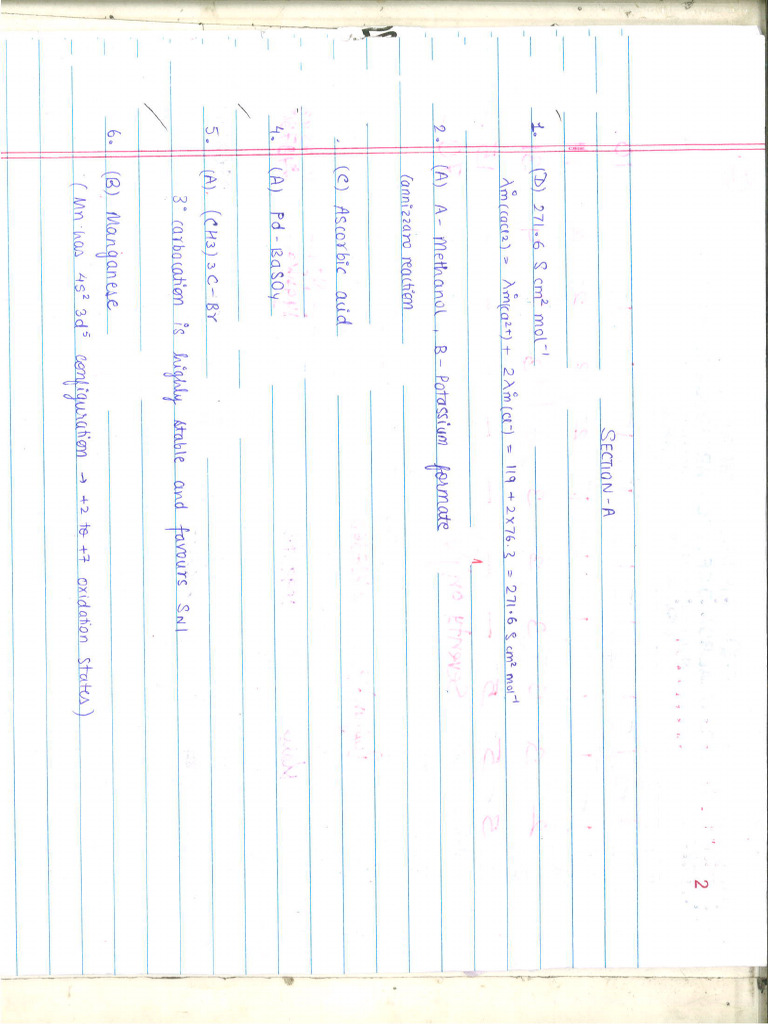 2
SECTION-A
1. (D) 271.6 S cm² mol⁻¹
λ°m(CaCl2) = λ°m(Ca²⁺) + 2λ°m(Cl⁻) = 119 + 2×76.3 = 271.6 S cm² mol⁻¹
2. (A) A - Methanol, B - Potassium formate
Cannizzaro reaction
(C) Ascorbic acid
4. (A) Pd - BaSO4
5. (A). (CH3)3C-Br
3° carbocation is highly stable and favours SN1
6. (B) Manganese
(Mn has 4s² 3d⁵ configuration → +2 to +7 oxidation states)